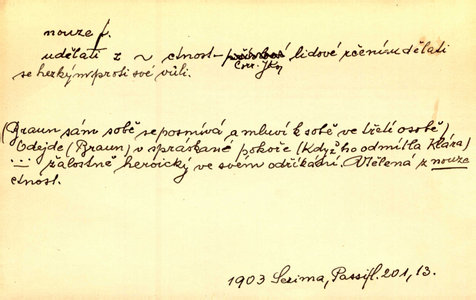 nouze f.
udělati z ~ ctnost – lidové rčení: udělati
se hezkým proti své vůli.
(Braun sám sobě se posmívá a mluví k sobě ve třetí osobě)
Odejde (Braun) v spráskané pokoře (když ho odmítla Klára)
žalostně heroický ve svém odříkání. Vtělená z nouze
ctnost.
1903 Sezima, Passifl. 201, 13.